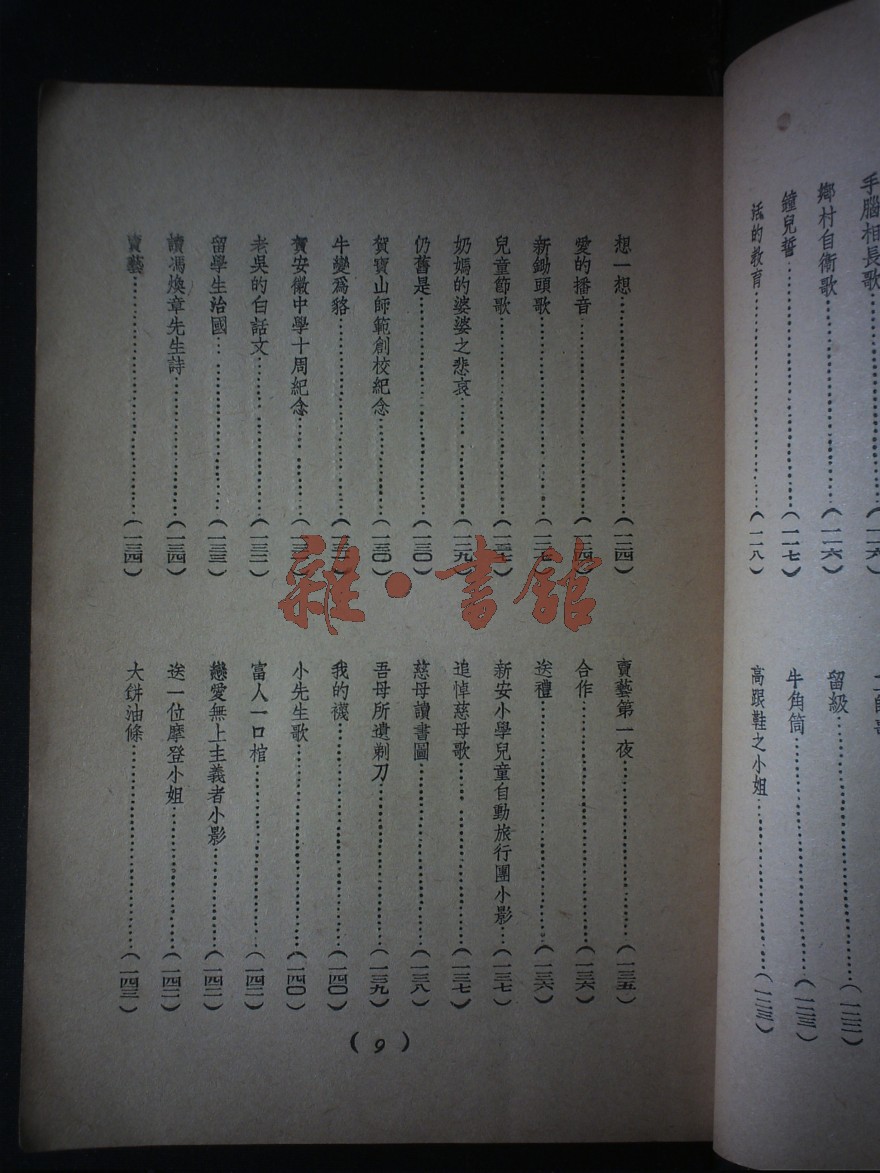 手腦相長歌
鄉村自衛歌……(一一六)
鐘兒誓……(一一七)
活的教育……(一一八)
留級……(一二二)
牛角筒……(一二三)
高跟鞋之小姐……(一二三)
想一想……(一二四)
愛的播音……(一二四)
新鋤頭歌……
兒童節歌……
奶媽的婆婆之悲哀……(一二九)
仍舊是……(一三〇)
賀寶山師範創校紀念……(一三〇)
牛變爲貉……
賀安徽中學十周紀念……
老吳的白話文……(一三二)
留學生治國……(一三三)
讀馮煥章先生詩……(一三四)
賣藝……(一三四)
賣藝第一夜……(一三五)
合作……(一三六)
送禮……(一三六)
新安小學兒童自動旅行團小影……(一三七)
追悼慈母歌……(一三七)
慈母讀書圖……(一三八)
吾母所遺剃刀……(一三九)
我的襪……(一四〇)
小先生歌……(一四〇)
富人一口棺……(一四二)
戀愛無上主義者小影……(一四二)
送一位摩登小姐……(一四二)
大餅油條……(一四三)
(9)
雜·書館